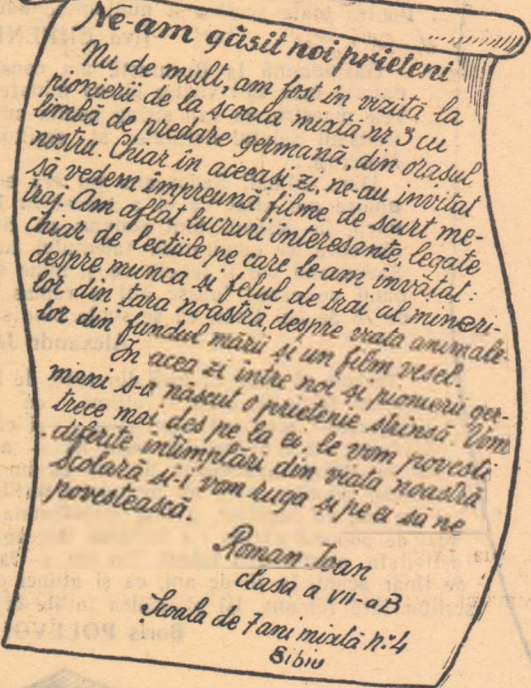 Ne-am găsit noi prieteni
Nu de mult, am fost în vizită la
pionierii de la școala mixtă nr 3 cu
limbă de predare germană, din orașul
nostru. Chiar în aceeași zi, ne-au invitat
să vedem împreună filme de scurt me-
traj. Am aflat lucruri interesante, legate
chiar de lecțiile pe care le-am învățat:
despre munca și felul de trai al mineri-
lor din țara noastră, despre viața animale-
lor din fundul mării și un film vesel.
În acea zi între noi și pionierii ger-
mani s-a născut o prietenie strînsă. Vom
trece mai des pe la ei, le vom povesti
diferite întîmplări din viața noastră
școlară și-i vom ruga și pe ei să ne
povestească.
Roman Ioan
clasa a VII-a B
Școala de 7 ani mixtă nr. 4
Sibiu
Boris POLEVOI